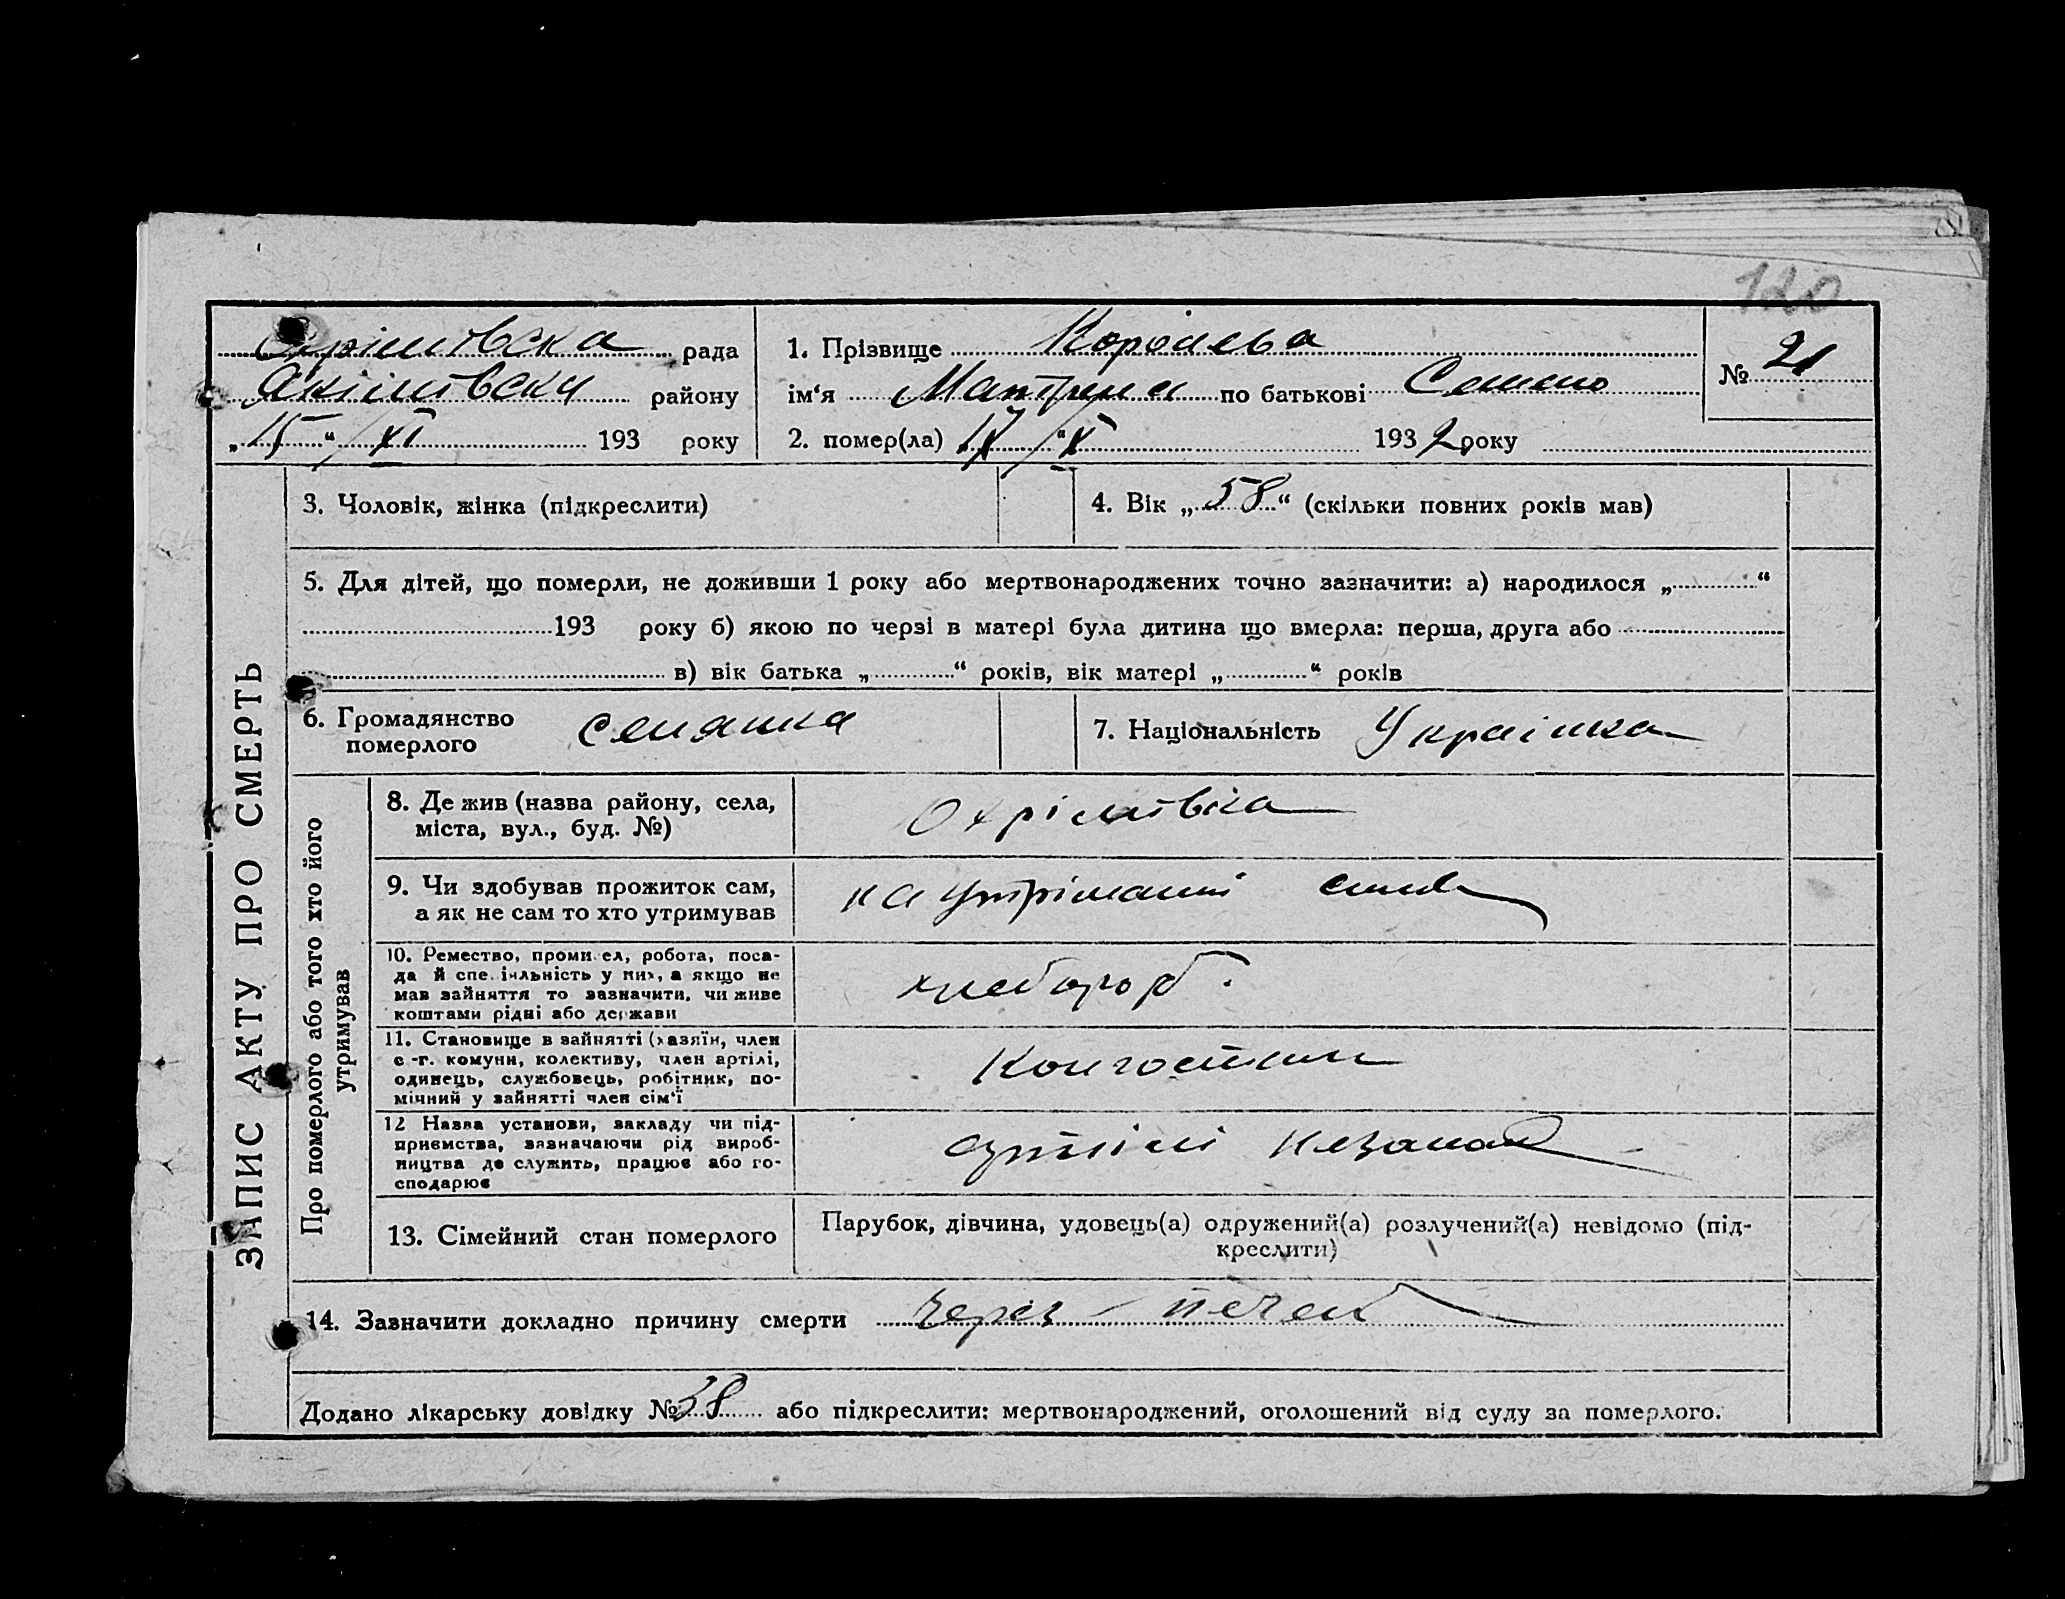 120
Охрімівска рада
Якимівска району
„15“ XI 193 року
1. Прізвище Королева
ім‘я Матрина по батькові
2. помер(ла) “X 1932 року
№ 21
ЗАПИС АКТУ ПРО СМЕРТЬ
3. Чоловік, жінка (підкреслити)
4. Вік „58“ (скільки повних років мав)
5. Для дітей, що померли, не доживши 1 року або мертвонароджених точно зазначити: а) народилося „ “
193 року б) якою по черзі в матері була дитина що вмерла: перша, друга або
в) вік батька „ “ років, вік матері „ “ років
6. Громадянство
померлого селянка
7. Національність Українка
Про померлого або того хто його
утримував
8. Де жив (назва району, села,
міста, вул., буд. №)
Охрімівка
9. Чи здобував прожиток сам,
а як не сам то хто утримував
на утріманні сина
10. Ремество, промисел, робота, поса-
да й спеціяльність у них, а якщо не
мав зайняття то зазначити, чи живе
коштами рідні або держави
хлебороб.
11. Становище в зайнятті (хазяїн, член
с-г. комуни, колективу, член артілі,
одинець, службовець, робітник, по-
мічний у зайнятті член сім‘ї
Колгоспник
12 Назва установи, закладу чи під-
приємства, зазначаючи рід вироб-
ництва де служить, працює або го-
сподарює
артілі
13. Сімейний стан померлого
Парубок, дівчина, удовець(а) одружений(а) розлучений(а) невідомо (під-
креслити)
14. Зазначити докладно причину смерти через
Додано лікарську довідку № 38 або підкреслити: мертвонароджений, оголошений від суду за померлого.